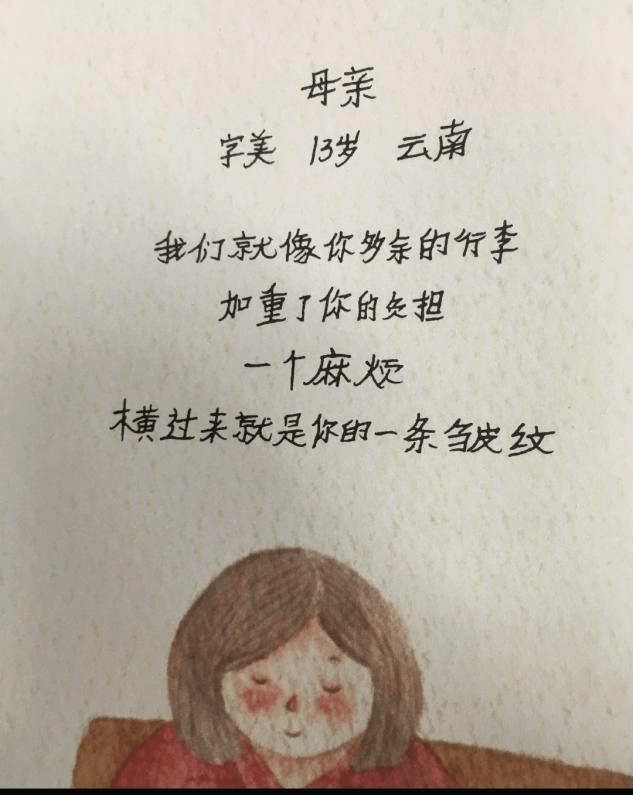 母亲
字美 13岁 云南
我们就像你多余的行李
加重了你的负担
一个麻烦
横过来就是你的一条皱皮纹